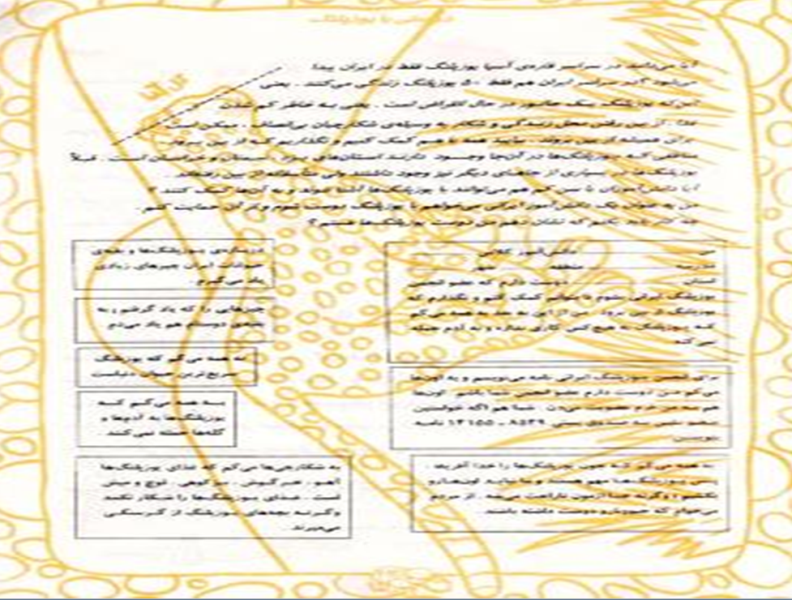 آشنایی با یوزپلنگ
آیا می‌دانید در سراسر قاره‌ی آسیا یوزپلنگ فقط در ایران پیدا
می‌شود و در سراسر ایران هم فقط ۵۰ یوزپلنگ زندگی می‌کنند. یعنی
این‌که یوزپلنگ یک جانور در حال انقراض است. یعنی به خاطر کم شدن
غذا، از بین رفتن محل زندگی و شکار به وسیله‌ی شکارچیان بی‌انصاف، ممکن است
برای همیشه از بین بروند. بیایید همه با هم کمک کنیم و نگذاریم که از بین بروند.
مناطقی که یوزپلنگ‌ها در آن‌جا وجود دارند استان‌های یزد، سمنان و خراسان است. قبلاً
یوزپلنگ‌ها در بسیاری از جاهای دیگر نیز وجود داشتند ولی متأسفانه از بین رفته‌اند.
آیا دانش‌آموزان با سن کم هم می‌توانند با یوزپلنگ‌ها آشنا شوند و به آن‌ها کمک کنند؟
من به عنوان یک دانش‌آموز ایرانی می‌خواهم با یوزپلنگ دوست شوم و از آن حمایت کنم.
چه کار باید بکنم که نشان دهم من دوست یوزپلنگ‌ها هستم؟
من دانش‌آموز کلاس
مدرسه منطقه شهر
استان دوست دارم که عضو انجمن
یوزپلنگ ایرانی بشوم تا بتوانم کمک کنم و نگذارم که
یوزپلنگ از بین برود. من از این به بعد به همه می‌گم
که یوزپلنگ به هیچ کس کاری نداره و به آدم حمله
نمی‌کنه.
درباره‌ی یوزپلنگ‌ها و بقیه‌ی
حیوانات ایران چیزهای زیادی
یاد می‌گیرم.
چیزهایی را که یاد گرفتم به
بقیه‌ی دوستام هم یاد می‌دم
به همه می‌گم که یوزپلنگ
سریع‌ترین حیوان دنیاست
برای انجمن یوزپلنگ ایرانی نامه می‌نویسم و به اون‌ها
می‌گم من دوست دارم عضو انجمن شما باشم. اون‌ها
هم به من عضویت می‌دن. شما هم اگه خواستین
عضو بشین به صندوق پستی ۸۵۴۹ - ۱۴۱۵۵ نامه
بنویسین
به همه می‌گم که
یوزپلنگ‌ها به آدم‌ها و
گله‌ها حمله نمی‌کنند.
به همه می‌گم که چون یوزپلنگ‌ها را خدا آفریده،
پس یوزپلنگ‌ها مهم هستند و ما نباید اون‌ها رو
بکشیم وگرنه خدا ازمون ناراحت می‌شه. از مردم
می‌خوام که حیوونارو دوست داشته باشند.
به شکارچی‌ها می‌گم که غذای یوزپلنگ‌ها
آهو، خرگوش، بز کوهی، قوچ و میش
است. غذای یوزپلنگ‌ها را شکار نکنند
وگرنه بچه‌های یوزپلنگ از گرسنگی
می‌میرند